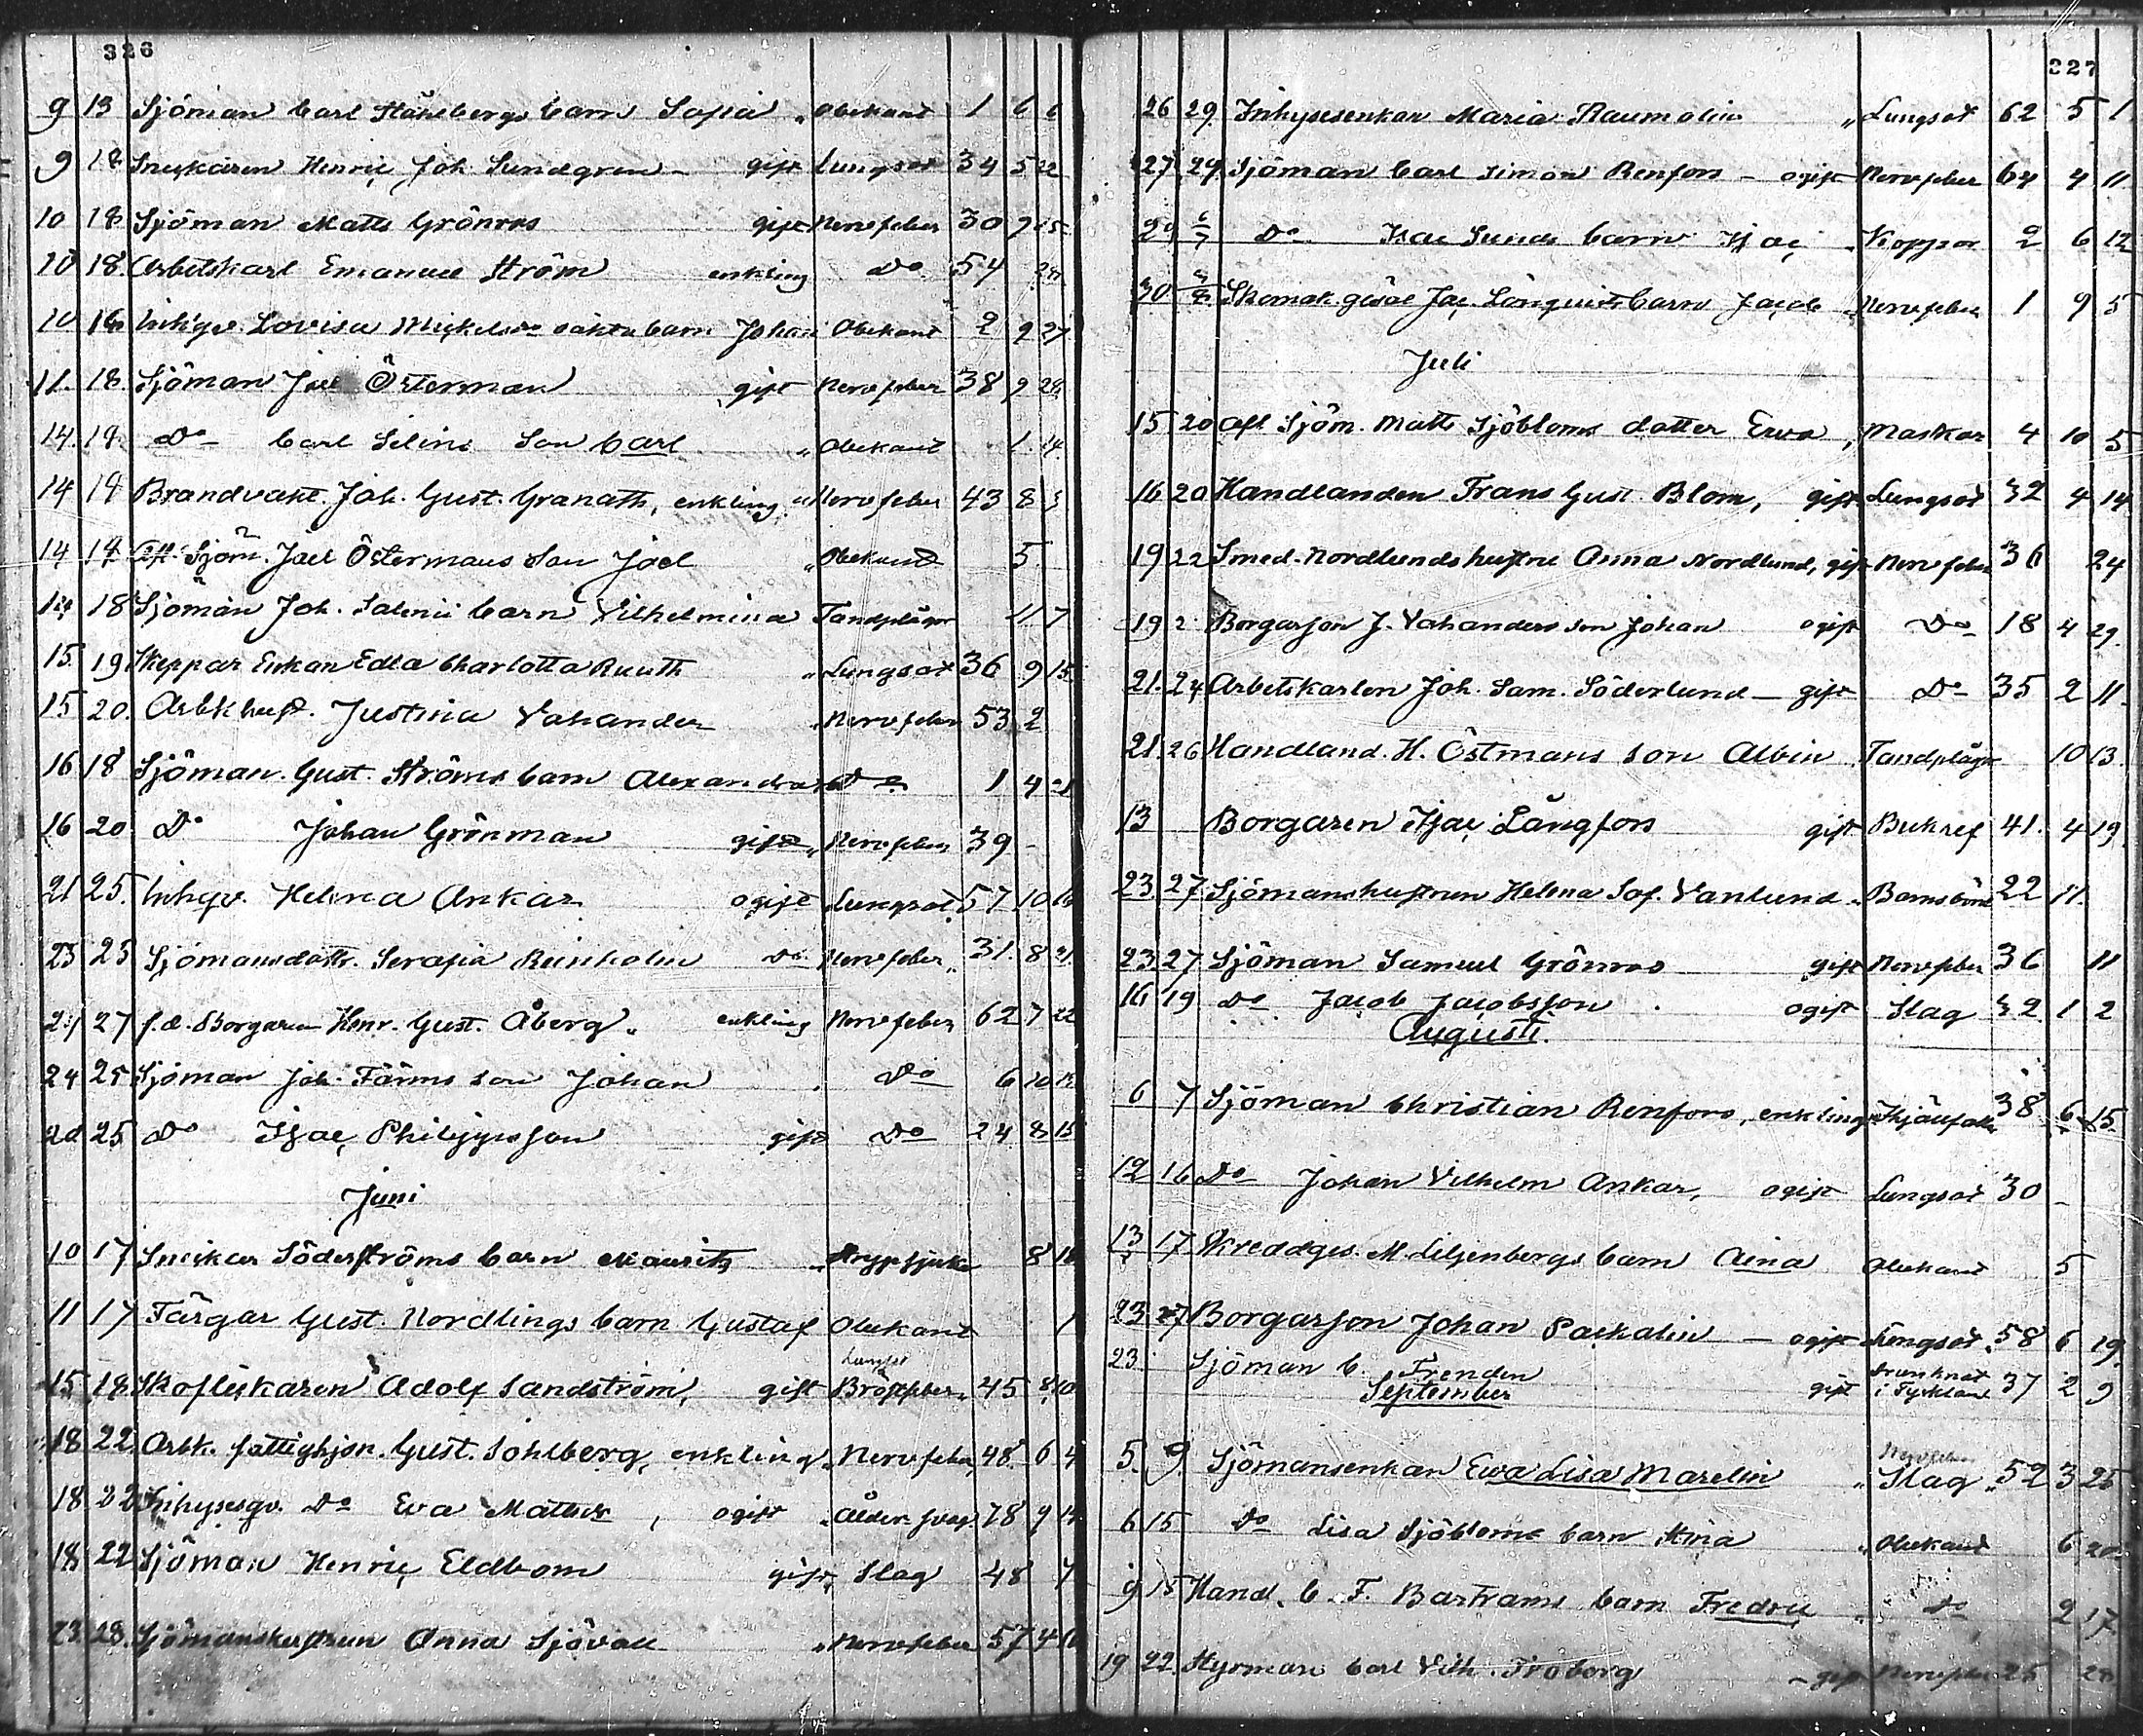 326
9 13 Sjöman Carl Ståhlbergs barn Sofia " Obekant 1 6 6
9 18 Snickaren Henric Joh Sundgren - gift Lungsot 34 5 22
10 18 Sjöman Matts Grönros gift Nervfeber 30 7 15
10 18 Arbetskarl Emanuel Ström enkling Do 54
10 18 Inhyv. Lovisa Mickelsdr oäkta barn Johan Obekant 2 9 27
11. 18. Sjöman Joel Österman gift Nervfeber 38 9 28
14. 19. Do Carl Selins Son Carl " Obekant 1. 14
14 19 Brandvakt. Joh. Gust. Granath, enkling " Nervfeber 43 8 3
14 19 Afl. Sjöm. Joel Östermans Son Joel " Obekand 5
14 18 Sjöman Joh. Salenii barn Vilhelmina Tandplågor 11 7
15. 19 Skeppar Enkan Edla Charlotta Ruuth " Lungsot 36 9 15
15 20. Arbkhust. Justina Vahander " Nervfeber 53 2
16 18 Sjöman. Gust. Ströms barn Alexandra Do 1 4 21
16 20 Do Johan Grönman gift " Nervfeber 39 -
21 25. Inhyv. Helena Ankar ogift Lungsot 57 10 16
23 25 Sjömansdottr. Serafia Reinholin Do. Nervfeber " 31. 8 21.
24 27 f.d. Borgaren Henr. Gust. Åberg " enkling Nervfeber 62 7 22
24 25 Sjöman Joh. Färms son Johan Do 6 10
20 25 Do Isac Philipsson gift Do 24 8 15
Juni
10 17 Snickar Söderströms barn Mauritz " Strypsjuka 8 18
11 17 Färgar Gust. Nordlings barn Gustaf Obekant 1
Lungsot
15 18. Skoflickaren Adolf Sandström, gift Bröstfeber. 45 8 10
18 22 Arbk. fattighjon. Gust. Sohlberg, enkling. Nervfeber 48. 6 4
18 22 Inhysesqv. Do Eva Mattsdr, ogift " Ålder svag. 78 9 14
18 22 Sjöman Henric Eldbom gift, Slag 48 7
23 28. Sjömanshustrun Anna Sjövall " Nervfeber 57 4 16
327
26 29. Inhysesenkan Maria Raumolin " Lungsot 62 5 1
27 29. Sjöman Carl Simon Renfors - ogift Nervfeber 64 4 11
29 6/7 Do Isac Sunds barn Isac " Koppor 2 6 12
30 Skomak. gesäl Jac. Lönquists barn Jacob " Nervfeber 1 9 5
Juli
15 20 Afl Sjöm. Matts Sjöbloms dotter Ewa, Maskar 4 10 5
16 20 Handlanden Frans Gust. Blom, gift Lungsot 32 4 14
19 22 Smed. Nordlunds hustru Anna Nordlund, gift Nervfeber 36 24
19 2 Borgarson J. Vahanders son Johan ogift Do 18 4 29.
21. 24 Arbetskarlen Joh. Sam. Söderlund - gift Do 35 2 11.
21. 26 Handland. H. Östmans son Albin Tandplågor 10 13.
13 Borgaren Isac Långfors gift Bukref 41. 4 19
23. 27 Sjömanshustrun Helena Sof. Vanlund " Barnsbörd 22 11.
23. 27 Sjöman Samuel Grönros gift Nervfeber 36 11
16 19 Do Jacob Jacobsson ogift Slag 32 1 2
Augusti.
6 7 Sjöman Christian Renfors, enkling 38 6 15.
12 16 Do Johan Vilhelm Ankar, ogift Lungsot 30 -
13 17 Skreddges. M. Liljenbergs barn Aina Obekant 5
23. 27 Borgarson Johan Packalin - ogift Lungsot. 58 6 19.
23 Sjöman C. Frenden gift drunknat i Tyskland 37 2 9
September
5. 9. Sjömansenkan Ewa Lisa Marelin " Nervfeber Slag 52 3 25
6 15 Do Lisa Sjöbloms barn Stina " Obekant 6 20.
9 15 Hand. C. F. Bartrams barn Fredric " Do 2 17.
19 22. Styrman Carl Vilh. Froberg - gift Nervfeber 25 28